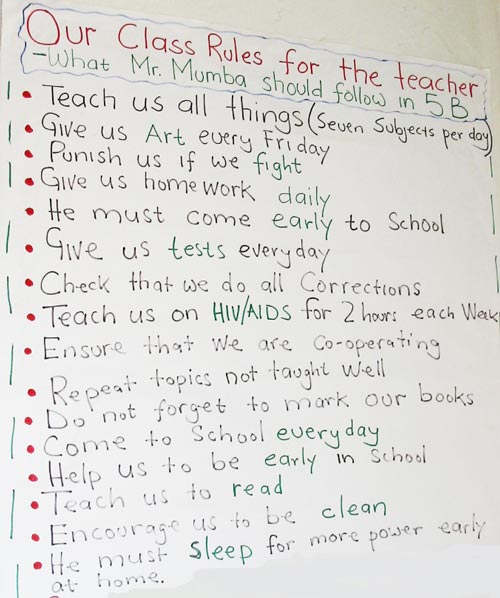 Our Class Rules for the teacher
-What Mr. Mumba should follow in 5B
• Teach us all things (Seven Subjects per day)
• Give us Art every Friday
• Punish us if we fight
• Give us homework daily
• He must come early to School
• Give us tests everyday
• Check that we do all Corrections
• Teach us on HIV/AIDS for 2 hours each Weak
• Ensure that We are Co-operating
• Repeat topics not taught Well
• Do not forget to mark our books
• Come to School everyday
• Help us to be early in School
• Teach us to read
• Encourage us to be clean
• He must sleep for more power early
at home.